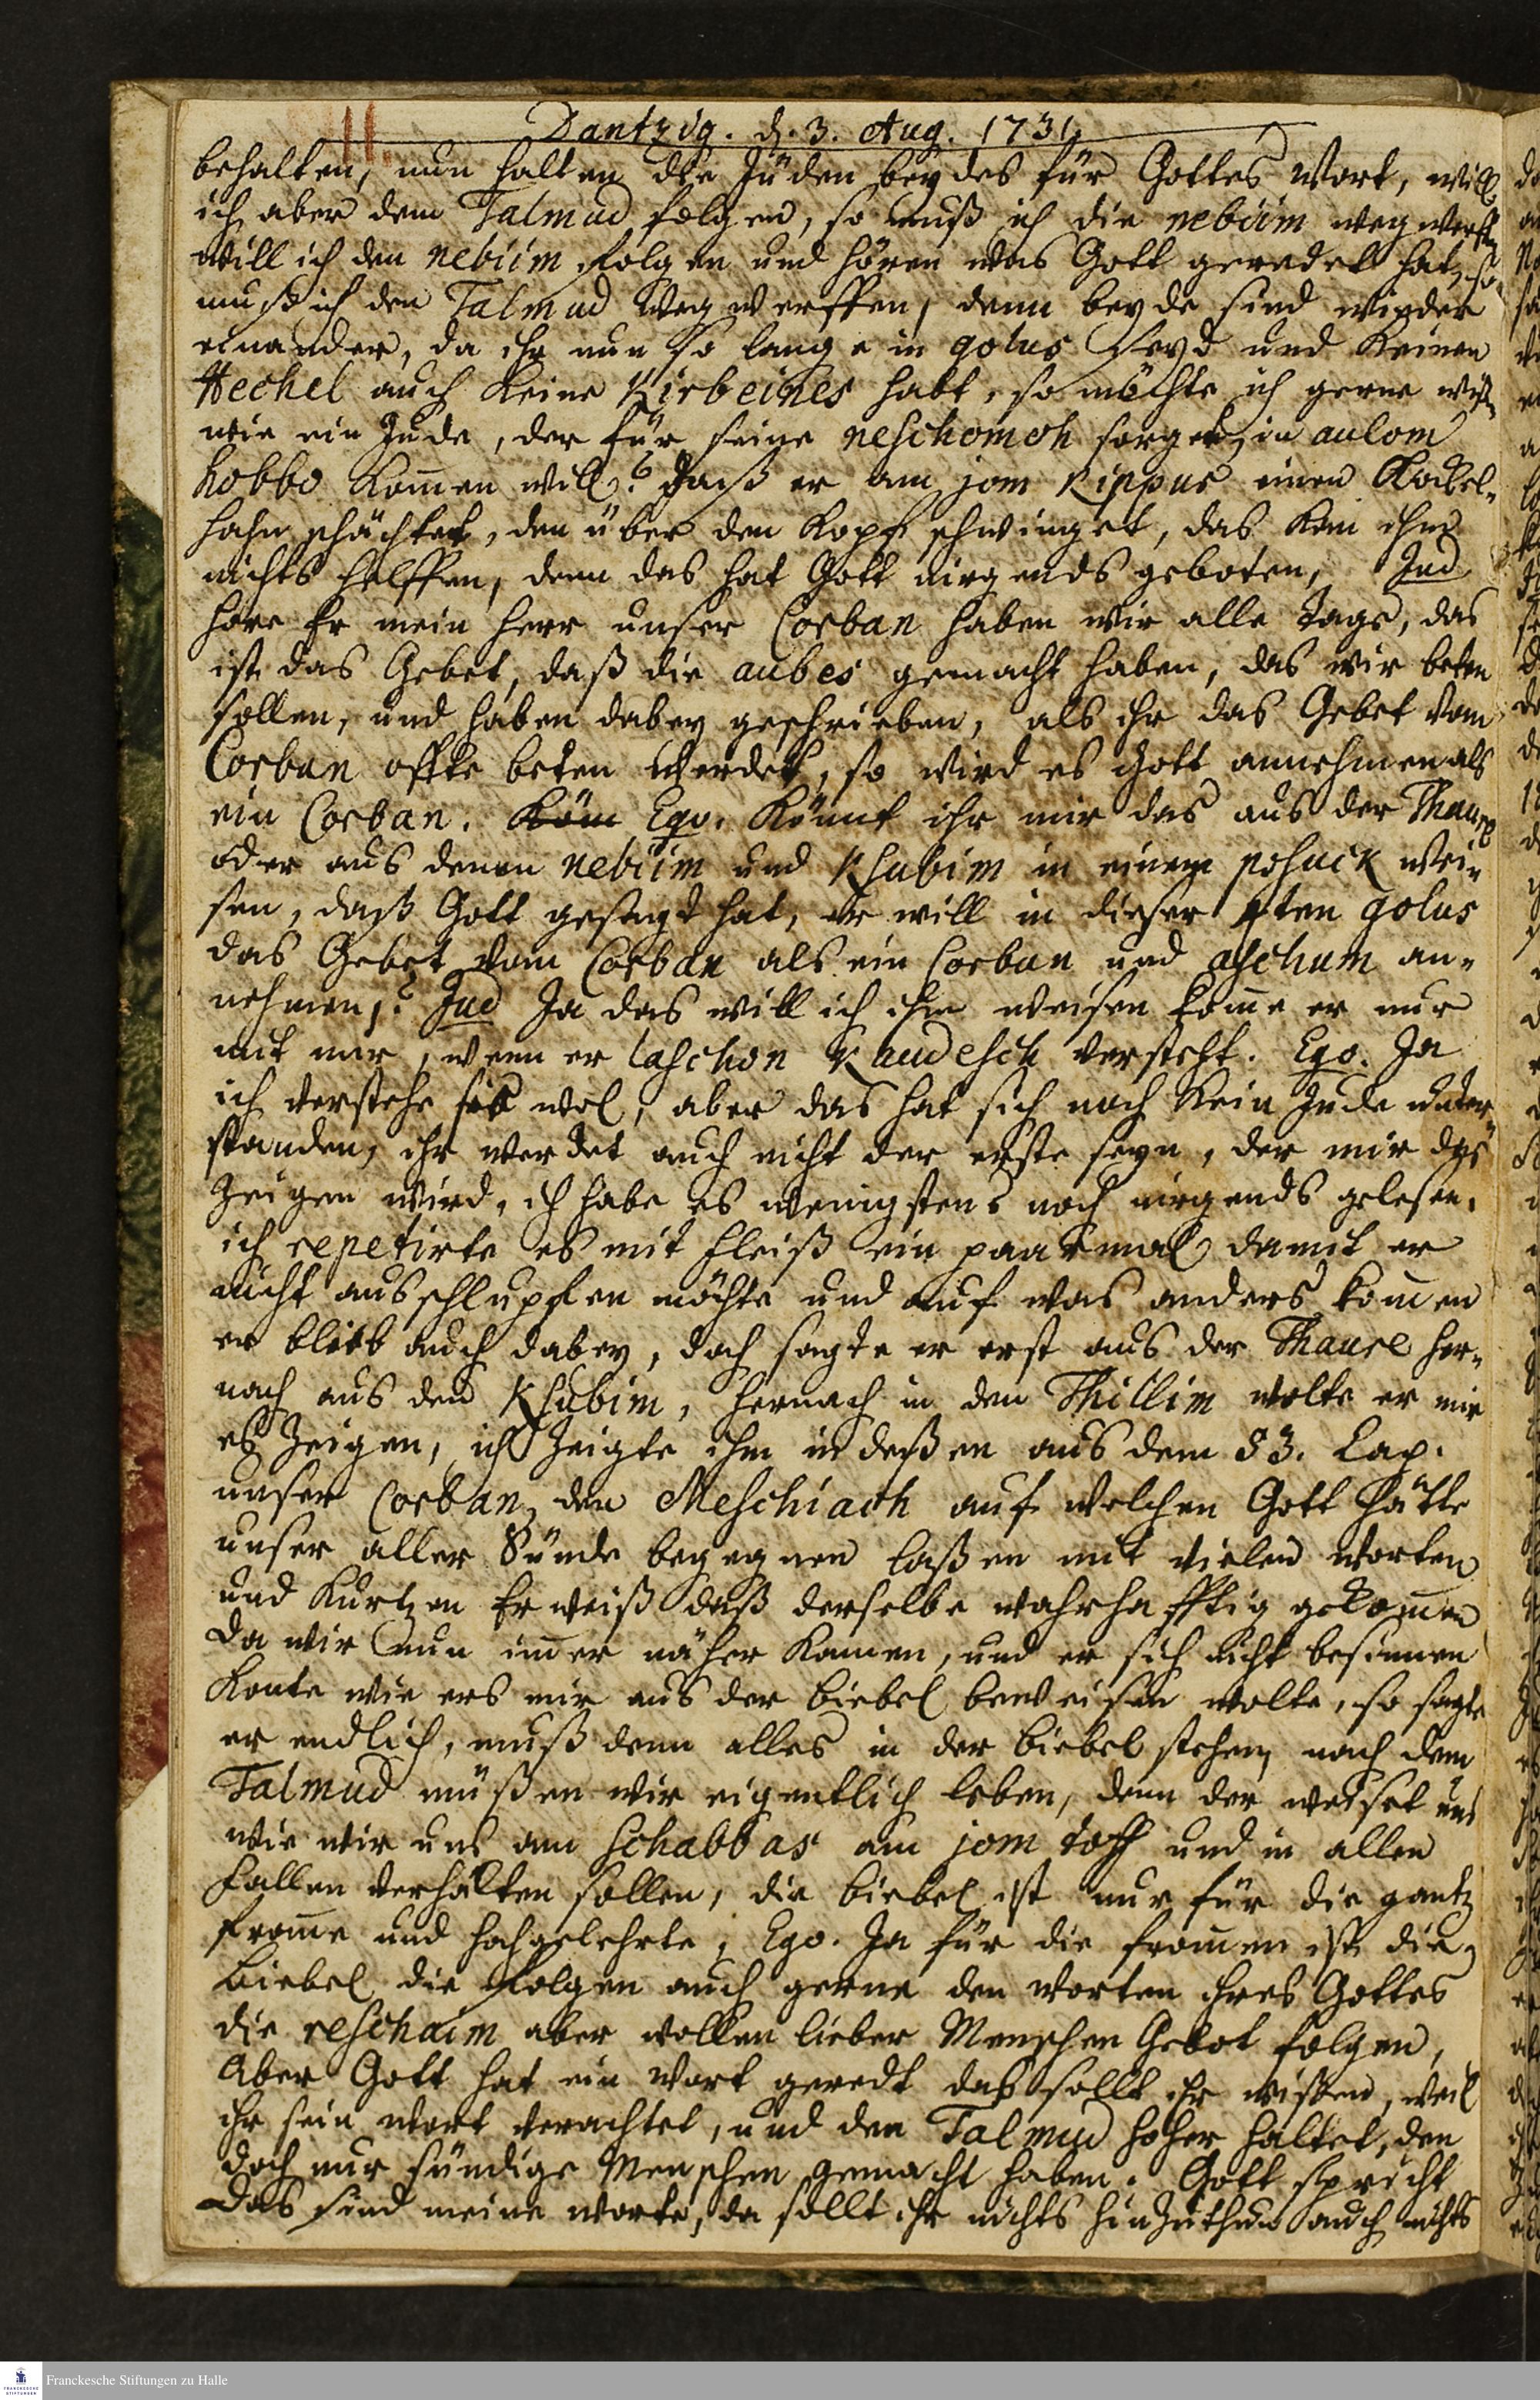 11.
Dantzig. d. 3. Aug. 1731.
behalten, nun halten die Juden beydes für Gottes Wort, will
ich aber dem Talmud folgen, so muß ich die nebiim wegwerffen
will ich den nebiim folgen und hören was Gott geredet hat, so
muß ich den Talmud wegwerffen, denn beyde sind wieder
einander, da ihr nun so lange in golus seyd und keinen
Hechel auch keine Kirbeines habt, so möchte ich gerne wißen
wie ein Jude, der für seine neschomoh sorget, in aulom
hobbo kom̄en will? daß er am jom Kippus einen Kockel-
hahn schächtet, den über den Kopf schwinget, das kan ihm
nichts helffen, denn das hat Gott nirgends geboten, Jud
höre Er mein Herr unser Corban haben wir alle Tage, das
ist das Gebet, daß die aubes gemacht haben, das wir beten
sollen, und haben dabey geschrieben, als ihr das Gebet vom
Corban offte beten werdet, so wird es Gott annehmen als
ein Corban. Köm Ego. Könnt ihr mir das aus der Thaure
oder aus denen nebiim und Ksubim in einem posuck wei-
sen, daß Gott gesagt hat, er will in dieser 4ten golus
das Gebet vom Corban als ein Corban und aschum an-
nehmen,? Jud Ja das will ich ihm weisen kom̄e er nur
mit mir, wenn er laschon Kaudesch versteht. Ego. Ja
ich verstehe es wol, aber das hat sich noch kein Jude unter-
standen, ihr werdet auch nicht der erste seyn, der mir das
zeigen wird, ich habe es wenigstens noch nirgends gelesen.
ich repetirte es mit Fleiß ein paarmal damit er
nicht ausschlupffen möchte und auf was anders kom̄en
er blieb auch dabey, doch sagte er erst aus der Thaure her-
nach aus den Ksubim, hernach in den Thillim wolte er mir
es zeigen, ich zeigte ihm indeßen aus dem 53. Cap.
unser Corban, den Meschiach auf welchen Gott hätte
unser aller Sünde begegnen laßen mit vielen Worten
und kurtzen Erweiß daß derselbe wahrhafftig gekom̄en
da wir nun im̄er näher kamen, und er sich nicht besinnen
konte wie ers mir aus der Biebel beweisen wolte, so sagte
er endlich, muß denn alles in der Biebel stehen, nach dem
Talmud müßen wir eigentlich leben, denn der weiset uns
wie wir uns am Schabbas am jom toff und in allen
Fällen verhalten sollen, die Biebel ist nur für die gantz
from̄e und hochgelehrte, Ego. Ja für die from̄en ist die
Biebel die folgen auch gerne den Worten ihres Gottes
die reschaim aber wollen lieber Menschen Gebot folgen,
Aber Gott hat ein Wort geredt das sollt ihr wißen, weil
ihr sein Wort verachtet, und den Talmud höher haltet, den
doch nur sündige Menschen gemacht haben. Gott spricht
das sind meine Worte, da sollt ihr nichts hinzuthun auch nichts
Franckesche Stiftungen zu Halle